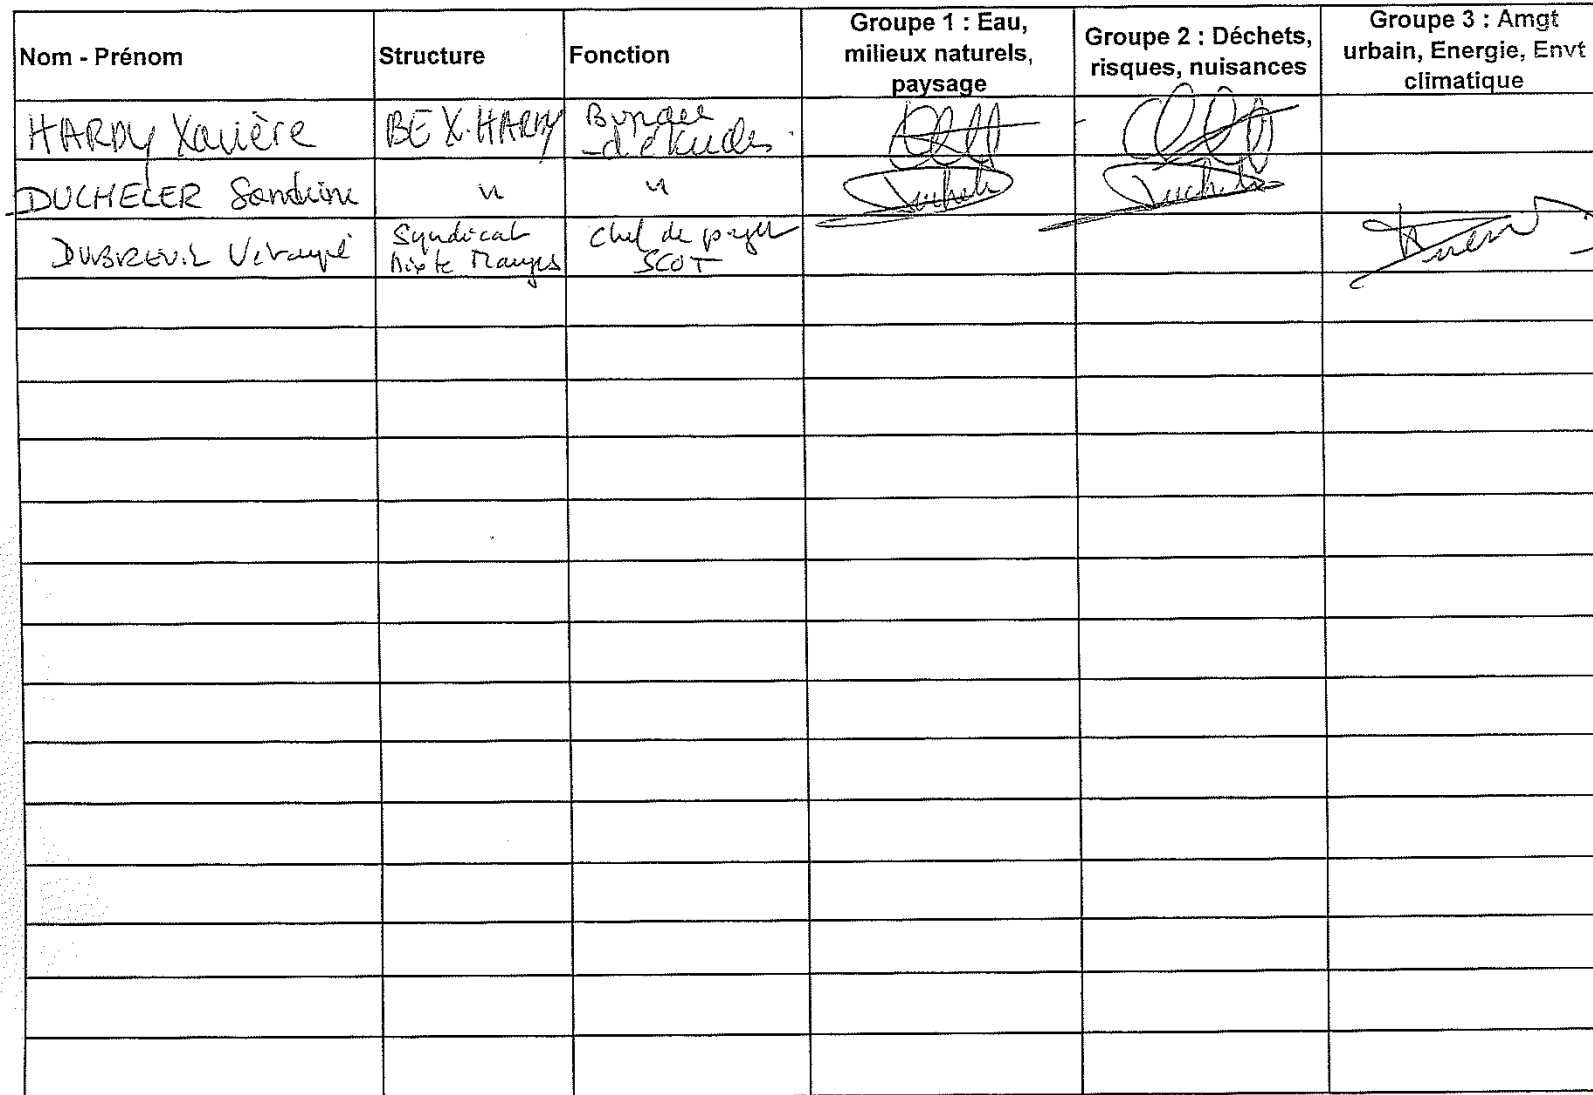 Nom - Prénom
Structure
Fonction
Groupe 1 : Eau,
milieux naturels,
paysage
Groupe 2 : Déchets,
risques, nuisances
Groupe 3 : Amgt
urbain, Energie, Envt
climatique
HARDY Xavière
BE X. HARDY
Bureau
d'études
DUCHELER Sandrine
"
"
DUBREUIL
Syndicat
Mixte Mauges
Chef de projet
SCOT